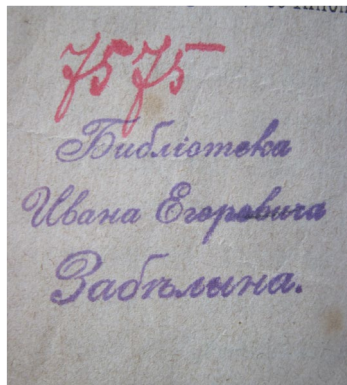 7575
Библіотека
Ивана Егоровича
Забѣлина.